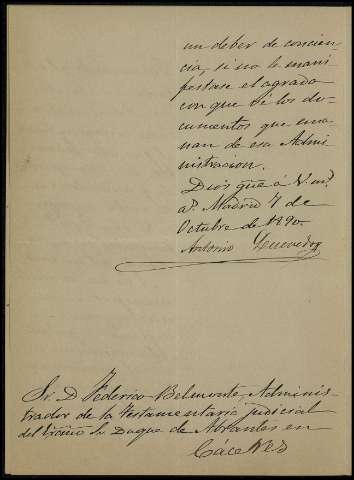 un deber de concien-
cia, si no le mani
festase el agrado
con que vé los do-
cumentos que ema
nan de esa Admi
nistracion.
Dios gũe á V. mˢ.
aˢ. Madrid 7 de
Octubre de 1890.
Antonio Quevedo
Sr. D. Federico Belmonte, Adminis-
trador de la Testamentaria judicial
del Sr. Duque de Abrantes en
Cáceres